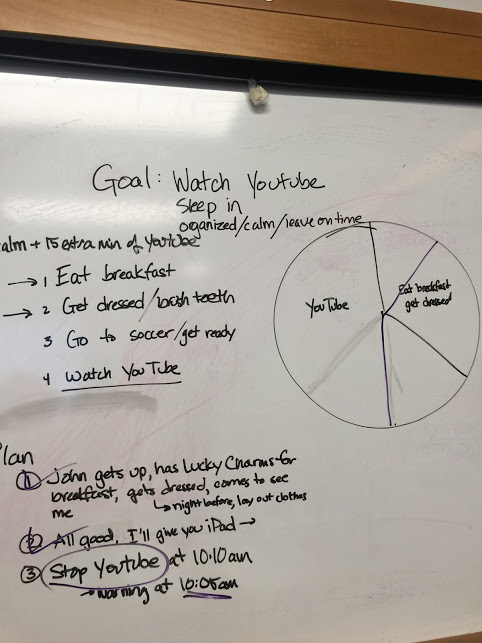 Goal: Watch Youtube
Sleep in
organized/calm/leave on time
alm + 15 extra min of YouTube
→ 1 Eat breakfast
→ 2 Get dressed/brush teeth
3 Go to soccer/get ready
4 Watch YouTube
YouTube
Eat breakfast
get dressed
lan
① John gets up, has Lucky Charms for
breakfast, gets dressed, comes to see
me
↳ night before, lay out clothes
② All good, I'll give you iPad →
③ Stop Youtube at 10:10am
→ warning at 10:05am